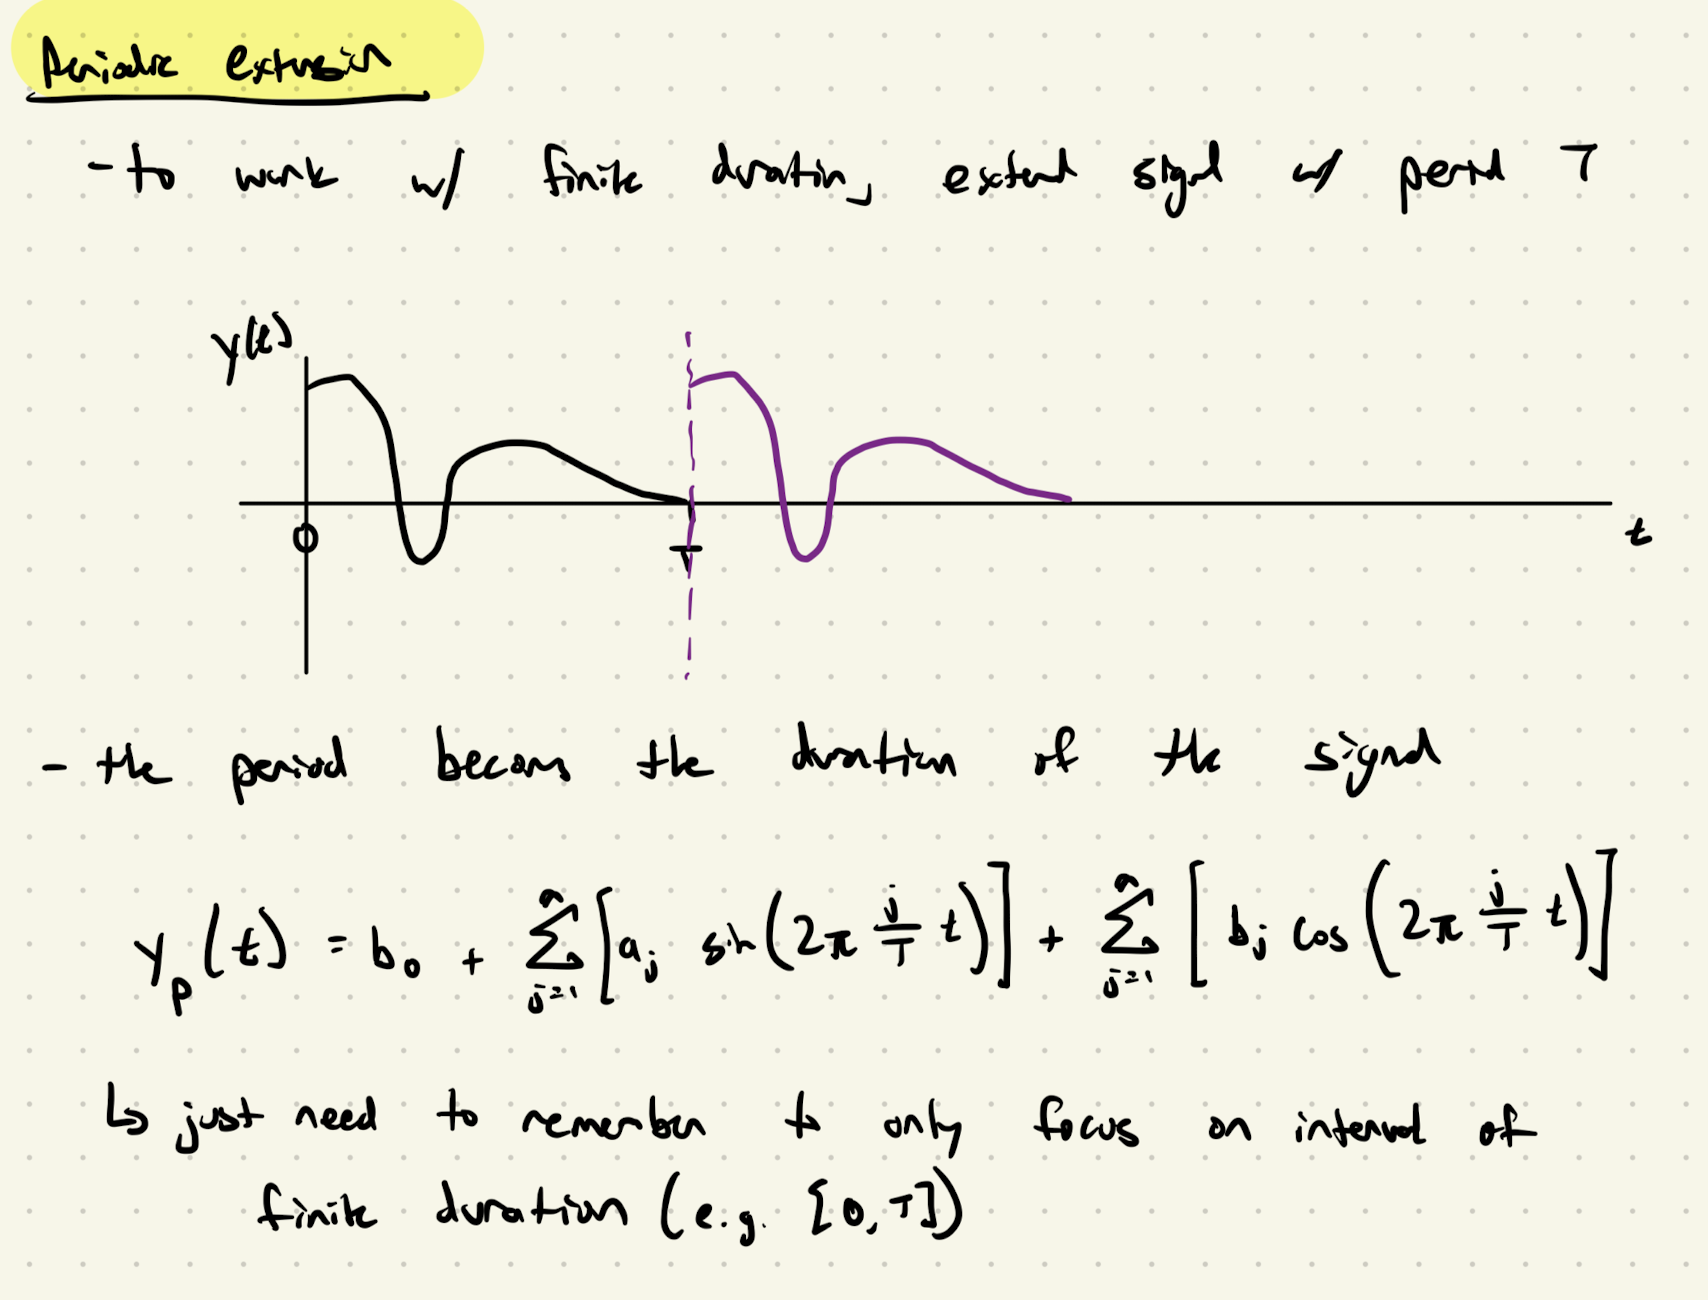 Periodic extension
- to work w/ finite duration, extend signal w/ period T
y(t)
0
T
t
- the period becomes the duration of the signal
y_p(t) = b_0 + ∑_{j=1}^{n} [a_j sin(2π j/T t)] + ∑_{j=1}^{n} [b_j cos(2π j/T t)]
↳ just need to remember to only focus on interval of
finite duration (e.g. [0, T])